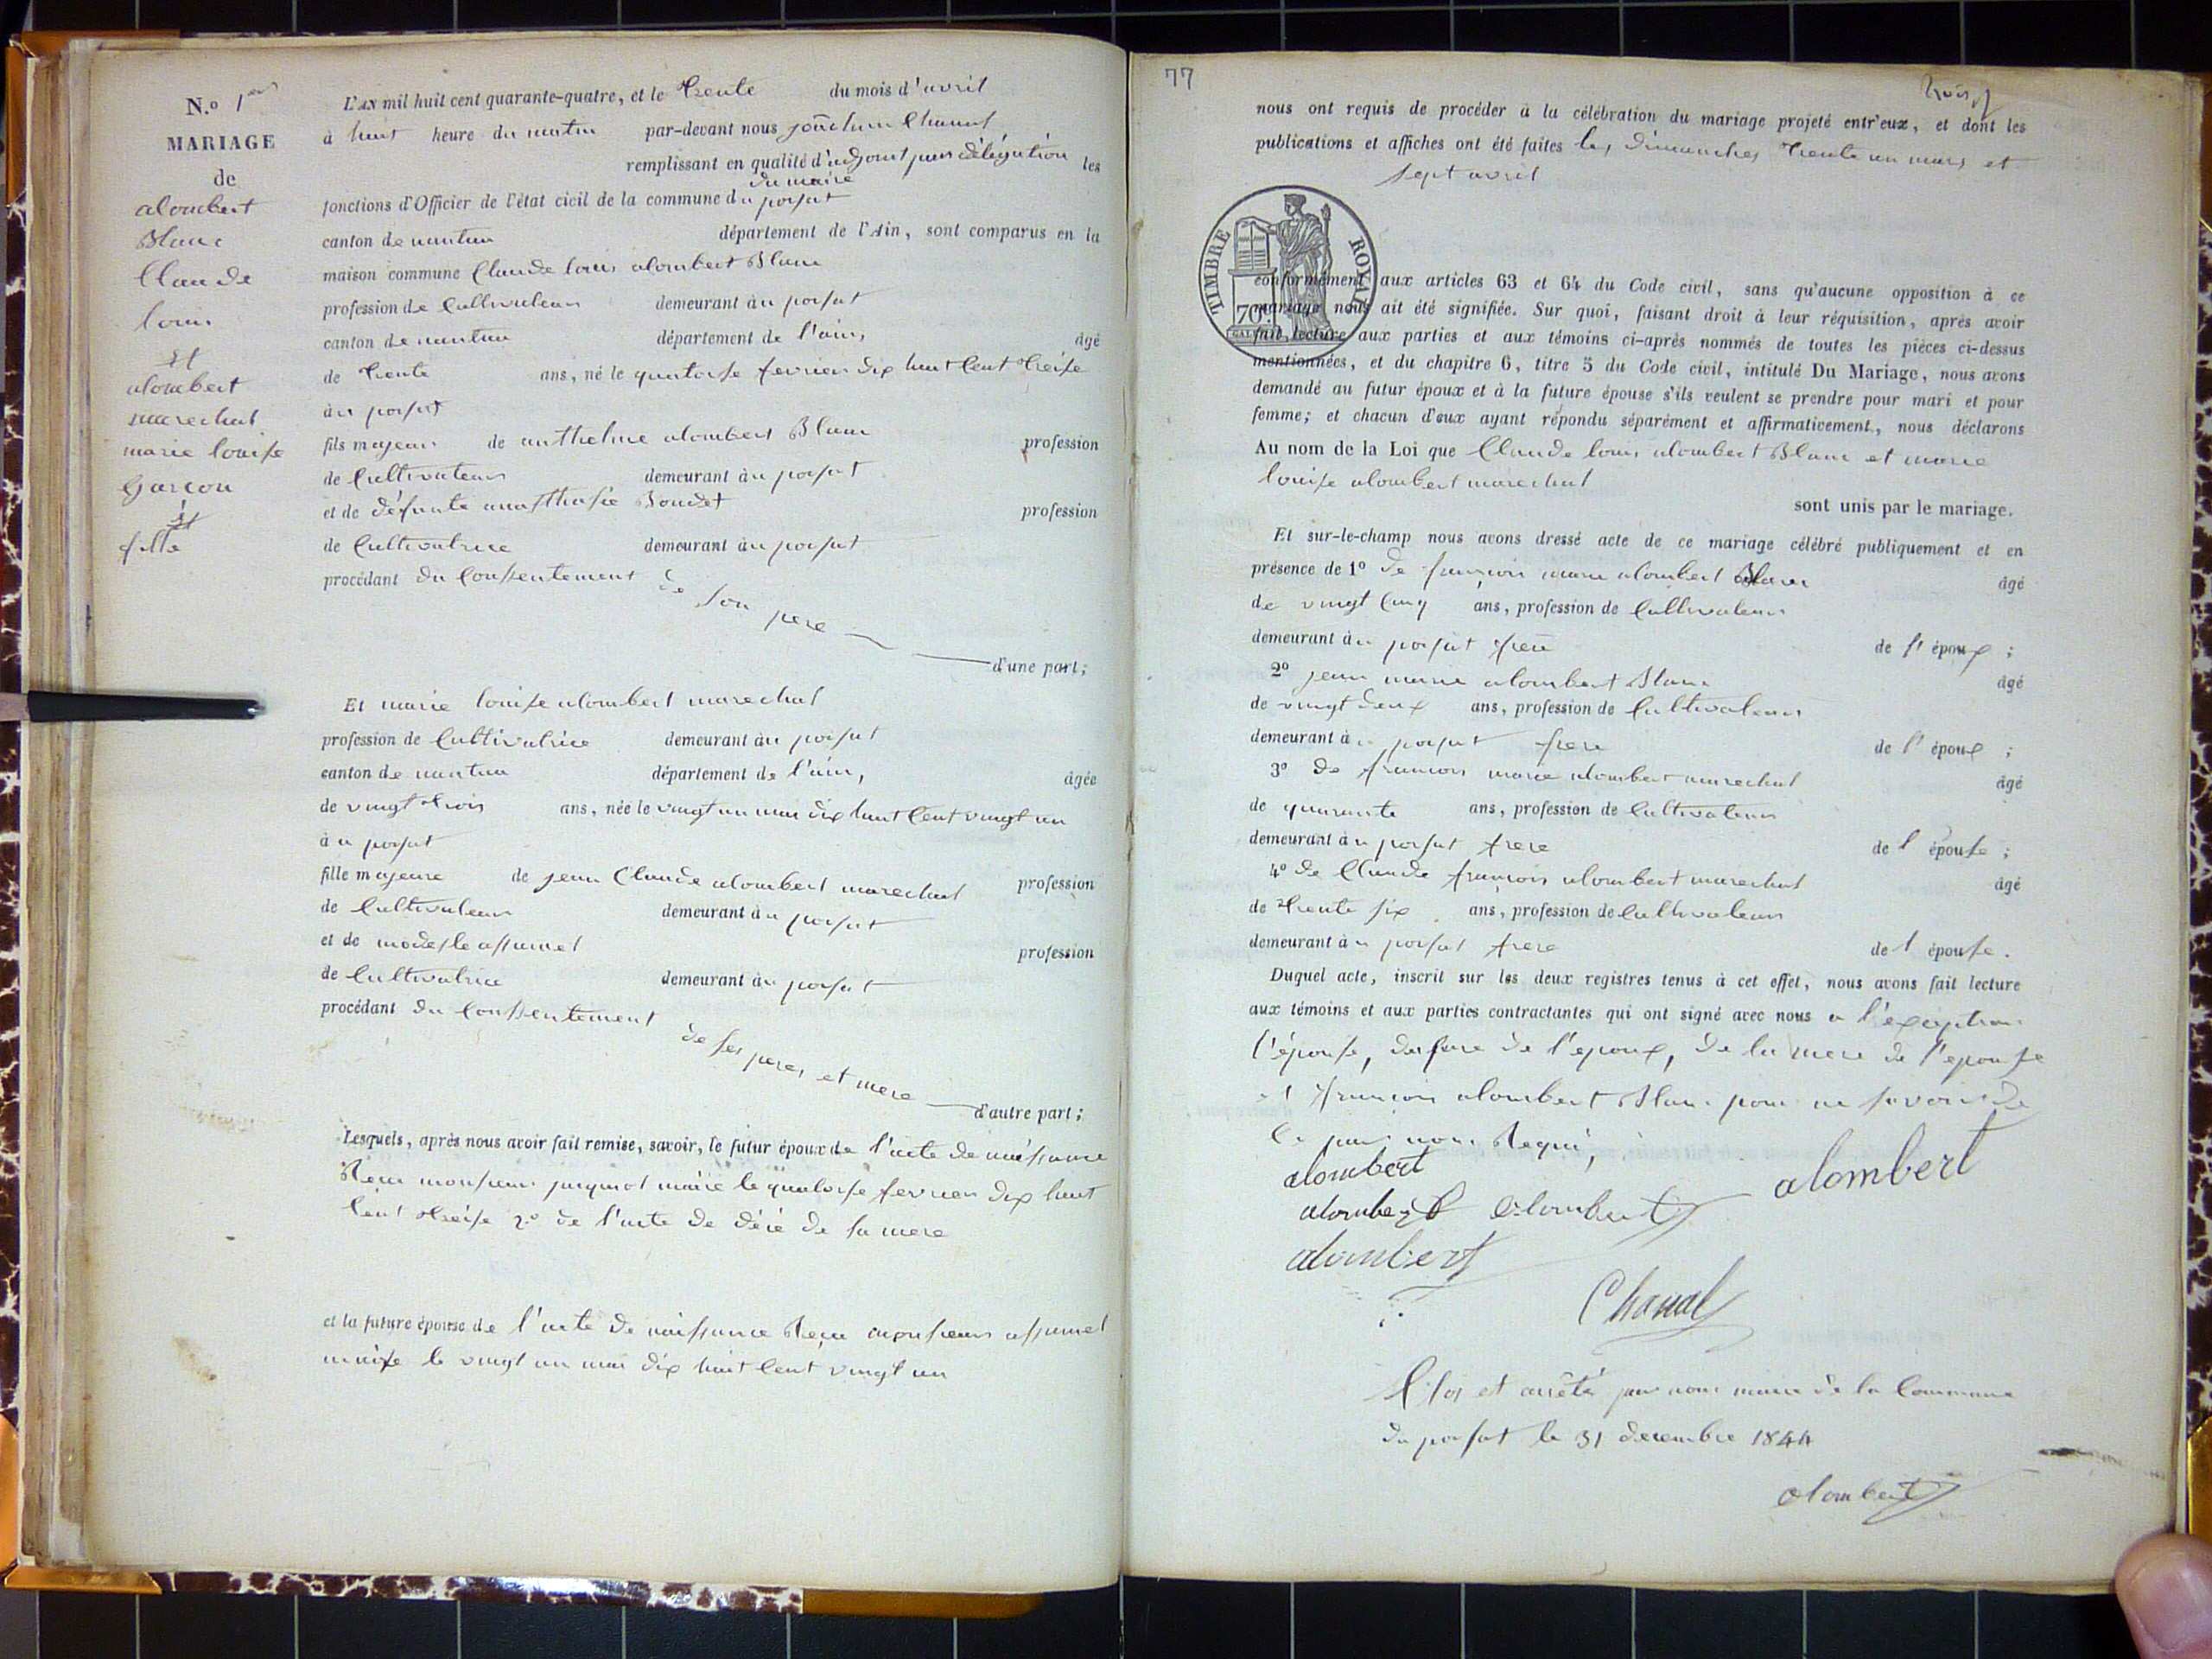 N.o 1er
MARIAGE
de
alombert
Blanc
Claude
louis
Et
alombert
marechal
marie louise
Garcon
Et
fille
L'AN mil huit cent quarante-quatre, et le trente du mois d'avril
à huit heure du matin par-devant nous joachim Chanal
remplissant en qualité d'adjoint par délégation les
du maire
fonctions d'Officier de l'état civil de la commune du poizat
canton de nantua département de l'Ain, sont comparus en la
maison commune Claude louis alombert Blanc
profession de Cultivateur demeurant au poizat
canton de nantua département de l'ain, âgé
de trente ans, né le quatorse fevrier dix huit Cent treise
au poizat
fils majeur de anthelme alombert Blanc profession
de Cultivateur demeurant au poizat
et de défunte anasthasie Boudet profession
de Cultivatrice demeurant au poizat
procédant du Consentement de son pere
d'une part;
Et marie louise alombert marechal
profession de Cultivatrice demeurant au poizat
canton de nantua département de l'ain, âgée
de vingt trois ans, née le vingt un mai dix huit Cent vingt un
au poizat
fille majeure de jean Claude alombert marechal profession
de Cultivateur demeurant au poizat
et de modeste assumel profession
de Cultivatrice demeurant au poizat
procédant du Consentement de ses peres et mere
d'autre part;
Lesquels, après nous avoir fait remise, savoir, le futur époux de l'acte de naissance
Recu monsieur maire le quatorse fevrier dix huit
Cent treise 2o de l'acte de décé de sa mere
et la future épouse de l'acte de naissance Reçu monsieur assumel
maire le vingt un mai dix huit Cent vingt un
77
nous ont requis de procéder à la célébration du mariage projeté entr'eux, et dont les
publications et affiches ont été faites les dimanches trente un mars et
sept avril
TIMBRE ROYAL
70c
conformément aux articles 63 et 64 du Code civil, sans qu'aucune opposition à ce
mariage nous ait été signifiée. Sur quoi, faisant droit à leur réquisition, après avoir
fait lecture aux parties et aux témoins ci-après nommés de toutes les pièces ci-dessus
mentionnées, et du chapitre 6, titre 5 du Code civil, intitulé Du Mariage, nous avons
demandé au futur époux et à la future épouse s'ils veulent se prendre pour mari et pour
femme; et chacun d'eux ayant répondu séparément et affirmativement, nous déclarons
Au nom de la Loi que Claude louis alombert Blanc et marie
louise alombert marechal
sont unis par le mariage.
Et sur-le-champ nous avons dressé acte de ce mariage célébré publiquement et en
présence de 1o de françois marie alombert Blanc âgé
de vingt Cinq ans, profession de Cultivateur
demeurant au poizat frere de l'époux;
2o jean marie alombert Blanc âgé
de vingt deux ans, profession de Cultivateur
demeurant au poizat frere de l'époux;
3o de françois marie alombert marechal âgé
de quarante ans, profession de Cultivateur
demeurant au poizat frere de l'épouse;
4o de Claude françois alombert marechal âgé
de trente six ans, profession de Cultivateur
demeurant au poizat frere de l'épouse.
Duquel acte, inscrit sur les deux registres tenus à cet effet, nous avons fait lecture
aux témoins et aux parties contractantes qui ont signé avec nous a l'exeption
l'épouse, du pere de l'epoux, de la mere de l'epouse
et françois alombert Blanc pour ne savoir de
Ce par nous Requi,
alombert
alombert alombert alombert
alombert
Chanal
Clos et arrêté par nous maire de la Commune
du poizat le 31 decembre 1844
alombert